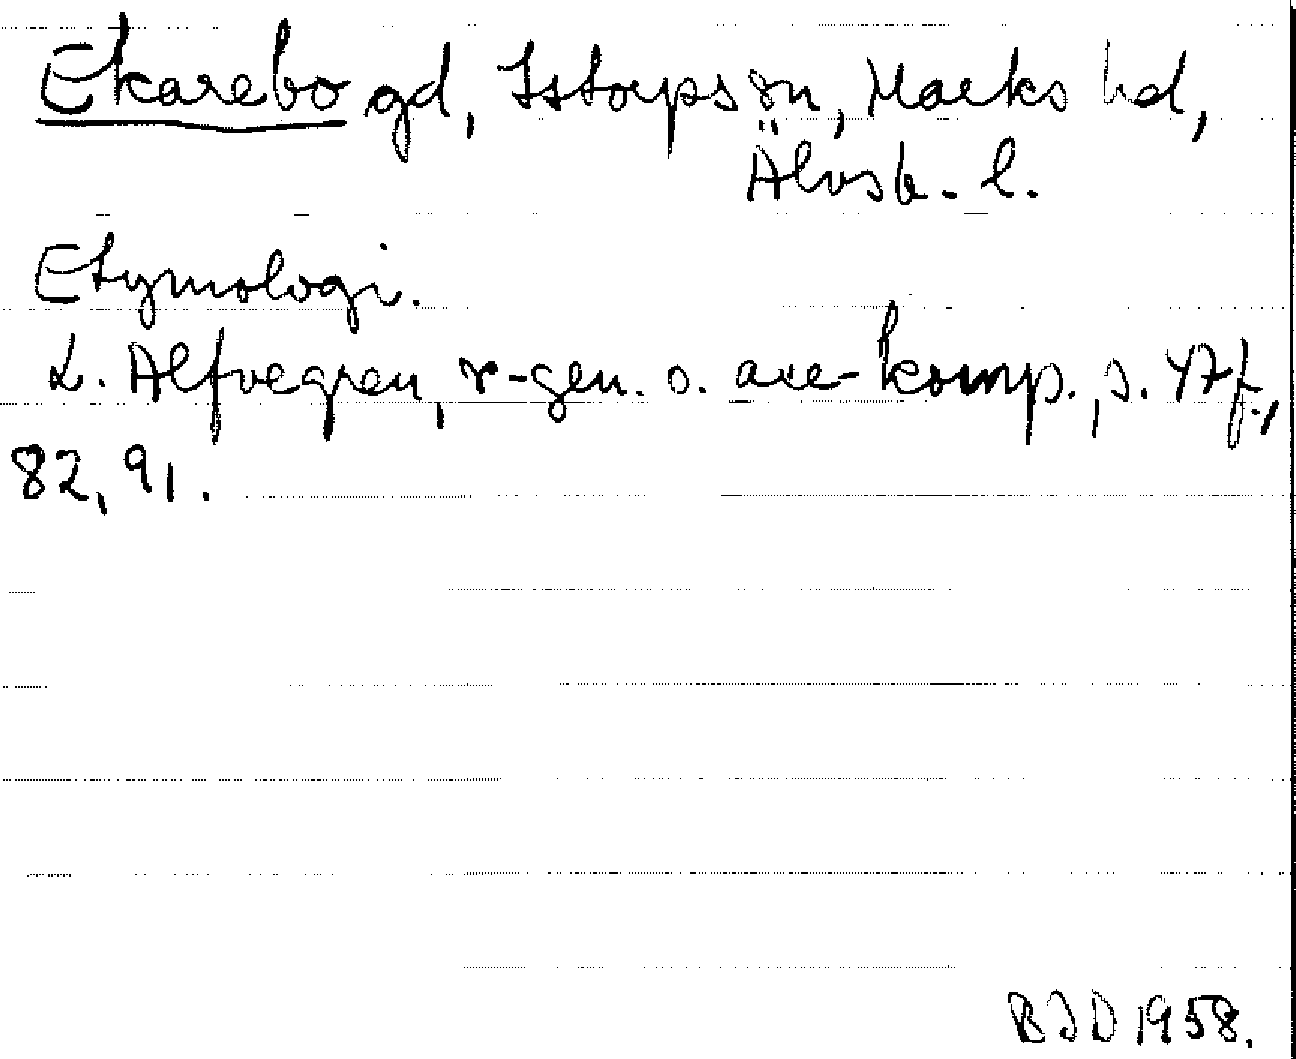 Ekarebo gd, Istorps sn, Marks hd,
Älvsb. l.
Etymologi.
L. Alfvegren, r-gen. o. are-komp., s. 47 f.,
82, 91.
BID 1958.